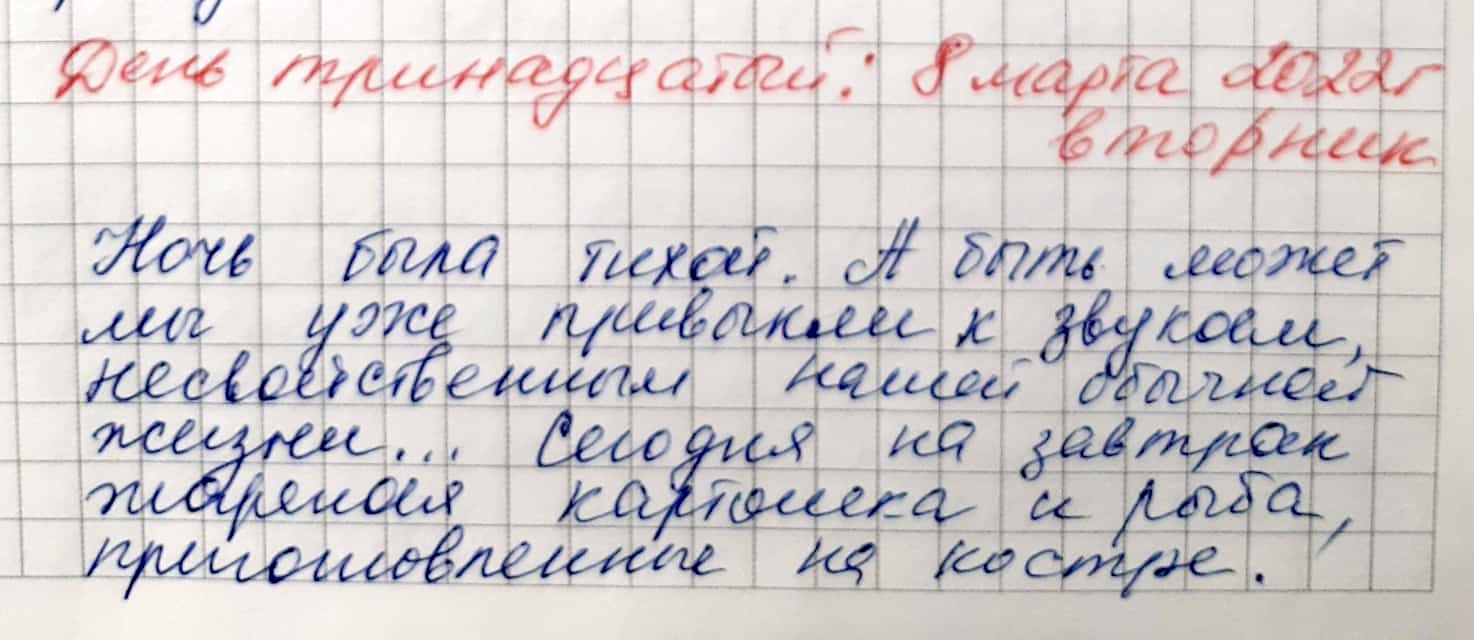 День тринадцатый: 8 марта 2022г
вторник
Ночь была тихой. А быть может
мы уже привыкли к звукам,
несвойственным нашей обычной
жизни... Сегодня на завтрак
жареная картошка и рыба,
приготовленные на костре.